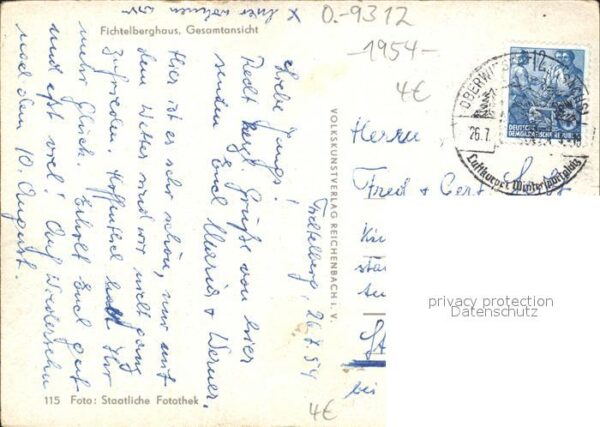 x hier wohnen wir
O.-9312
1954-
4€
Fichtelberghaus, Gesamtansicht
Fichtelberg, 26.7.54
Liebe Jungs!
Recht herzl. Grüße von hier
senden Euch Maria & Werner.
Hier ist es sehr schön, nur mit
dem Wetter sind wir nicht ganz
zufrieden. Hoffentlich habt Ihr
mehr Glück. Erholt Euch gut
und eßt viel! Auf Wiedersehn
nach dem 10. August.
VOLKSKUNSTVERLAG REICHENBACH i. V.
12
DEUTSCHE
DEMOKRATISCHE REPUBLIK
OBERWIESENTHAL
26.7.
Luftkurort Wintersportplatz
Herrn
Fred & Gert
bei
privacy protection
Datenschutz
115 Foto: Staatliche Fotothek
4€